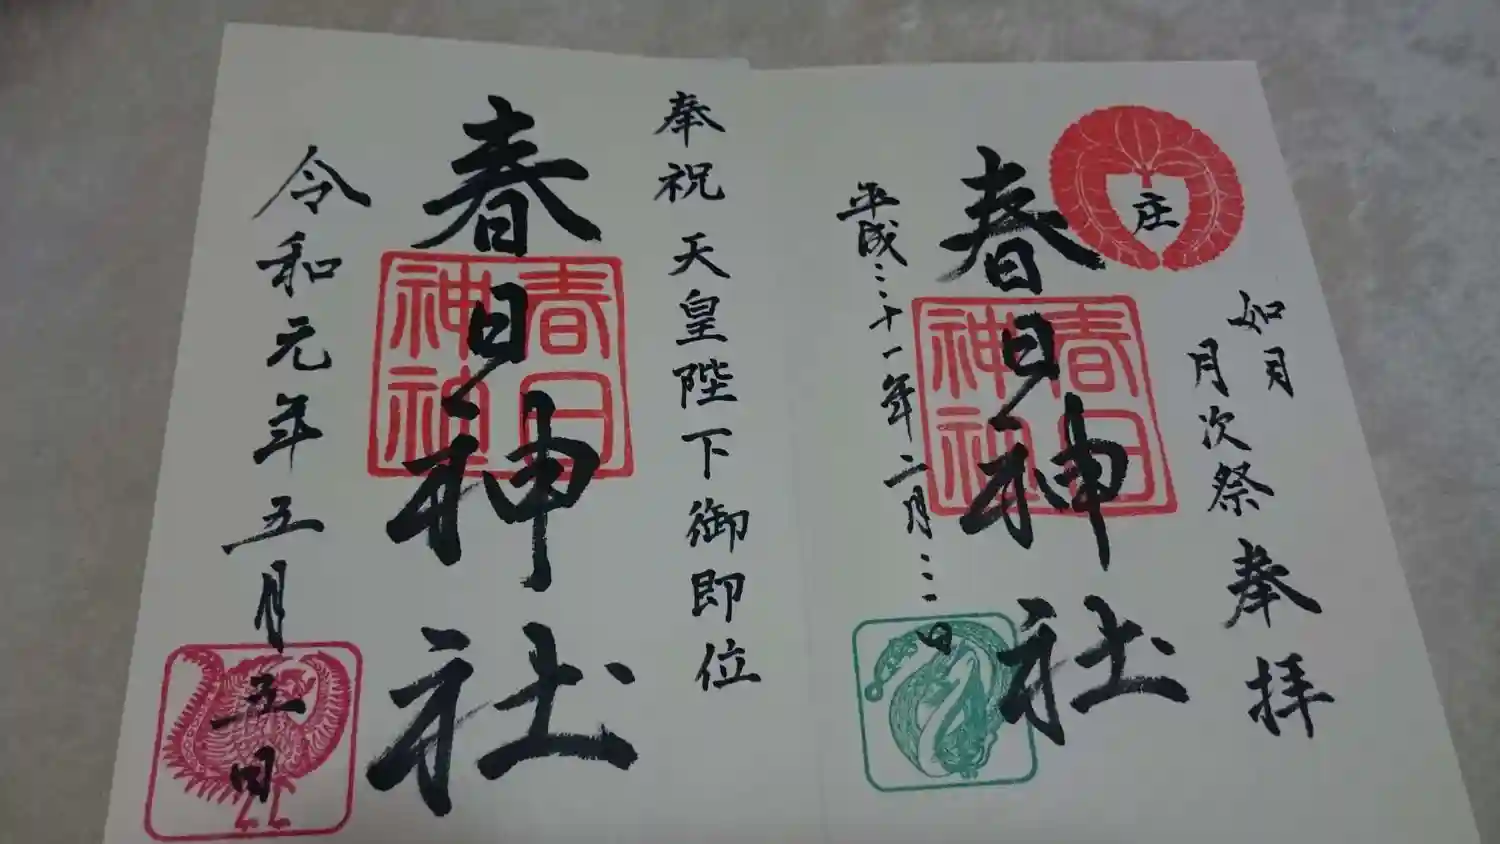 庄
如月
月次祭
奉拝
春日神社
春日神社
平成三十一年二月三日
奉祝 天皇陛下御即位
春日神社
春日神社
令和元年五月五日